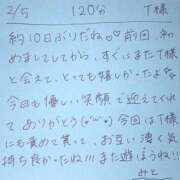 2/5 120分 T様
約10日ぶりだね♡♡前回、初
めましてしてから、すぐにまたT様
と会えて、とっても嬉しかったよ
今回も優しい笑顔で迎えてくれ
てありがとう(*^^*)今回はT様
にも責めて貰って、お互い凄く気
持ち良かったね!!!また遊ぼうね!!
みと